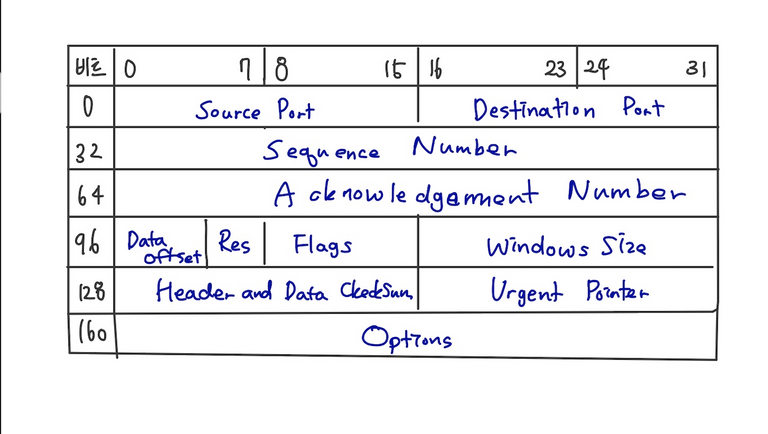 비트 0 7 8 15 16 23 24 31
0 Source Port Destination Port
32 Sequence Number
64 Acknowledgement Number
96 Data offset Res Flags Windows Size
128 Header and Data CheckSum Urgent Pointer
160 Options